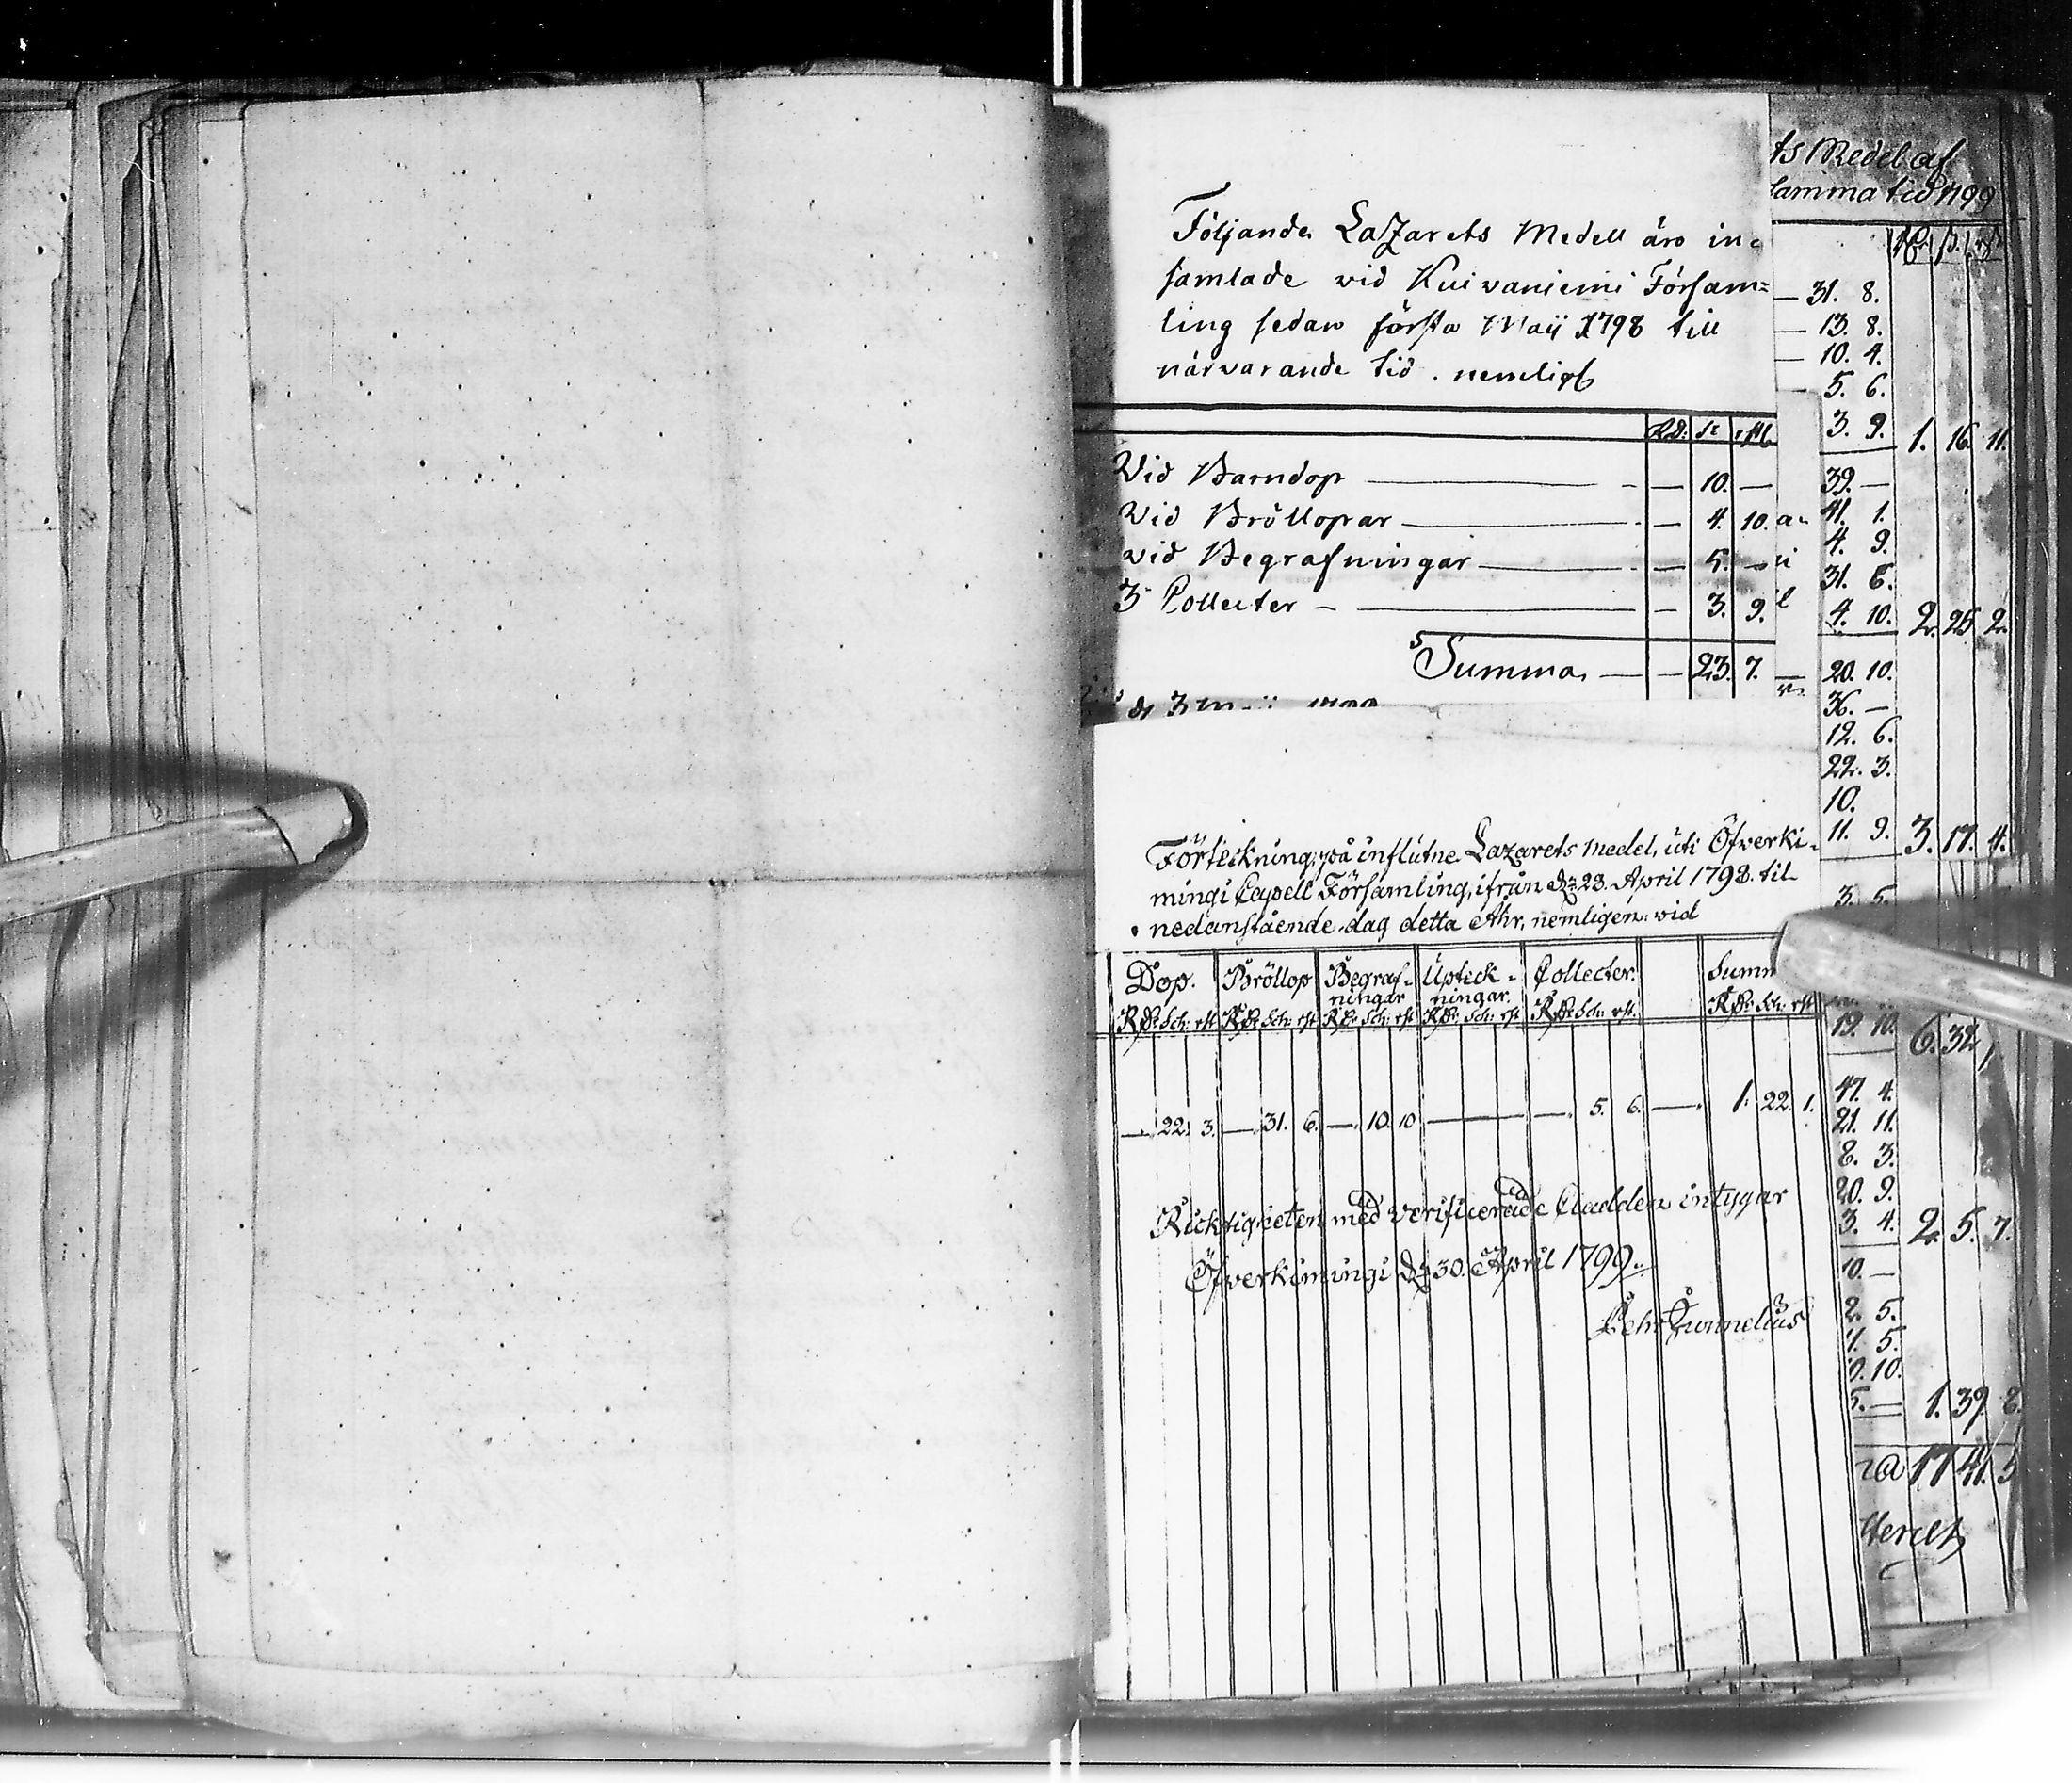 Följande Lazarets Medell äro in-
samlade vid Kuivaniemi Försam=
ling sedan första Maij 1798 till
närvarande tid. nemligt
RD: s: rst
Vid Barndop — — 10. —
Vid Bröllopar — — 4. 10.
vid Begrafningar — — 5. —
3 Collecter — — 3. 9.
Summa — — 23. 7.
Förteckning, på influtne Lazarets medel, uti Öfverki-
mingi Capell Församling, ifrån d. 28. April 1798. til
nedanstående dag detta Åhr, nemligen: vid
Dop. Bröllop Begraf- Upteck- Collecter. Summ
ningar ningar.
RD: Sch: rst RD: Sch: rst RD: Sch: rst RD: Sch: rst RD: Sch: rst. RD: Sch: rst
— 22. 3. — 31. 6. — 10. 10 — — 5. 6. — 1. 22. 1.
Ricktigheten med verificerade intygar
Öfverkimingi d. 30. April 1799.
Pehr
ts Medel af
samma tid 1799
31. 8.
13. 8.
10. 4.
5. 6.
3. 9. 1. 16. 11.
39. —
41. 1.
4. 9.
31. 6.
4. 10. 2. 25. 2.
20. 10.
36. —
12. 6.
22. 3.
10.
11. 9. 3. 17. 4.
3. 5.
19. 10. 6. 32
47. 4.
21. 11.
8. 3.
20. 9.
3. 4. 2. 5. 7.
10. —
2. 5.
5.
10.
5. — 1. 39. 8.
17 41. 5